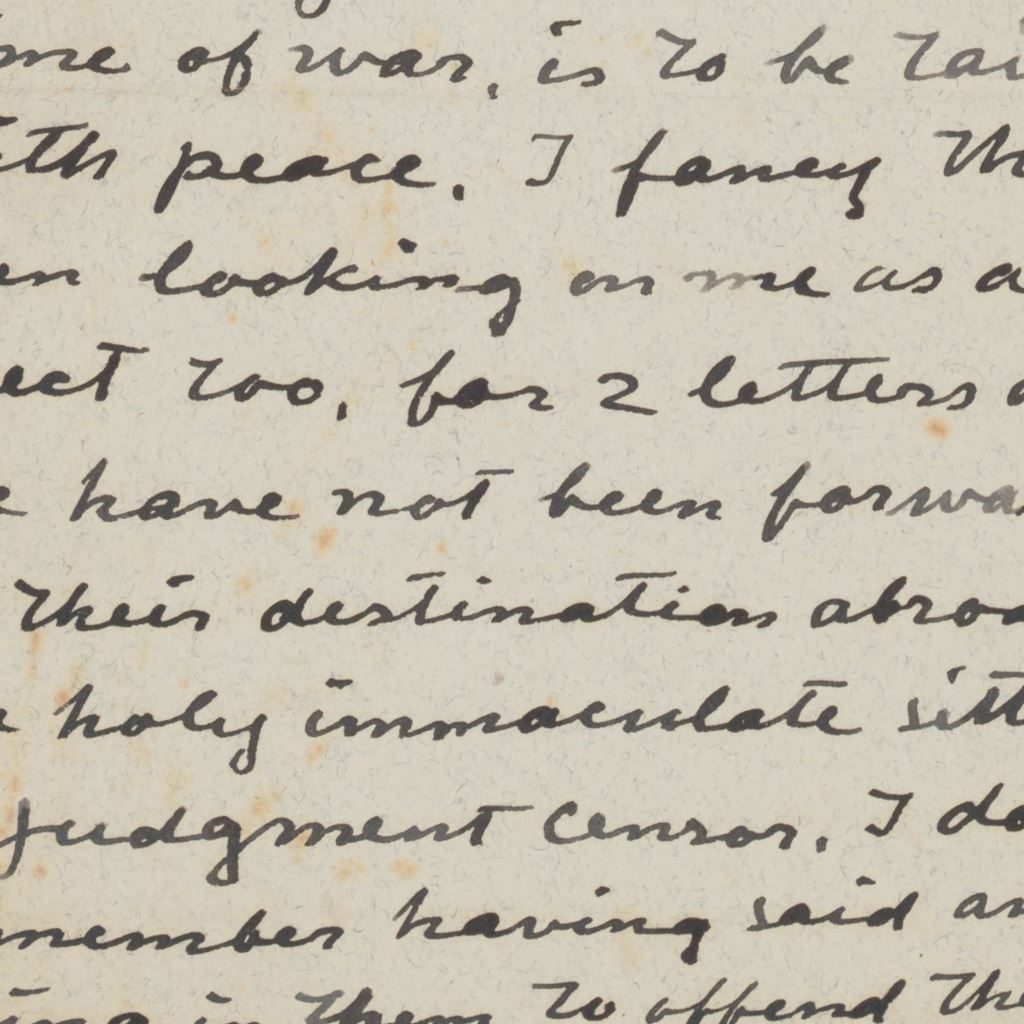 me of war, is to be tai
ith peace. I fancy th
en looking on me as a
ect too, for 2 letters
e have not been forwa
their destination abroa
holy immaculate sitt
judgment censor. I do
member having said an
ing in them to offend the